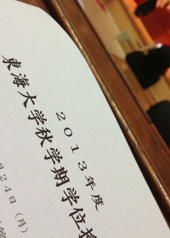 2013年度
東海大学秋学期学位
月24日(月)